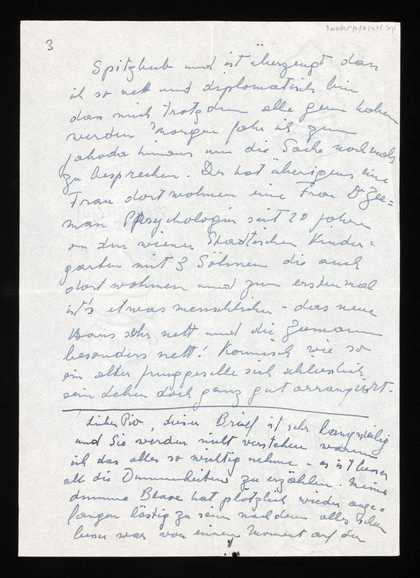 3
Spitzbub und ist überzeugt dass
ich so nett und diplomatisch bin
dass mich trotzdem alle gern haben
werden. Morgen fahr ich zum
Jahoda hinaus um die Sache nochmals
zu besprechen. Der hat übrigens eine
Frau dort wohnen eine Frau Dr Zee-
man Psychologin seit 20 Jahren
an den wiener Stadtischen Kinder-
garten mit 3 Söhnen die auch
dort wohnen und zum ersten mal
ist's etwas menschlicher - das neue
Haus sehr nett und die Zeemann
besonders nett! Komisch wie so
ein alter Junggeselle sich schliesslich
sein Leben doch ganz gut arrangiert.
Lieber Pio, dieser Brief ist sehr langweilig
und Sie werden nicht verstehen warum
ich das alles so wichtig nehme - es ist besser
als die Dummheiten zu erzählen. Meine
dumme Blase hat plötzlich wieder ange-
fangen lästig zu sein nachdem alles schon
besser war von einem Moment auf den